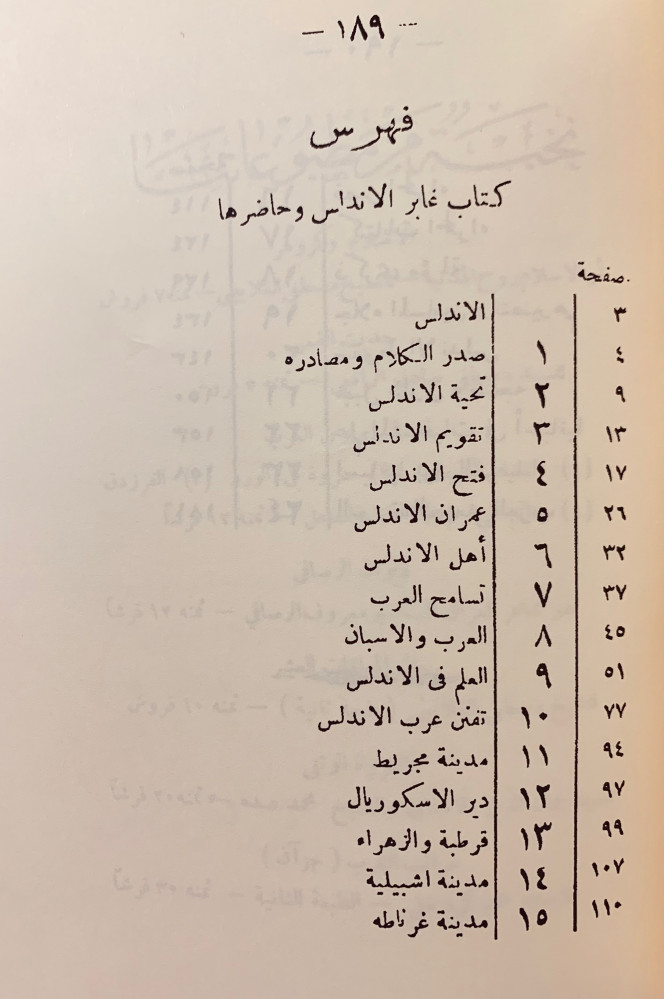 — ١٨٩ —
فهرس
كتاب غابر الاندلس وحاضرها
صفحة
٣ الاندلس
٤ ١ صدر الكلام ومصادره
٩ ٢ تحية الاندلس
١٣ ٣ تقويم الاندلس
١٧ ٤ فتح الاندلس
٢٦ ٥ عمران الاندلس
٣٢ ٦ أهل الاندلس
٣٧ ٧ تسامح العرب
٤٥ ٨ العرب والاسبان
٥١ ٩ العلم فى الاندلس
٧٧ ١٠ تفنن عرب الاندلس
٩٤ ١١ مدينة مجريط
٩٧ ١٢ دير الاسكوريال
٩٩ ١٣ قرطبة والزهراء
١٠٧ ١٤ مدينة اشبيلية
١١٠ ١٥ مدينة غرناطه